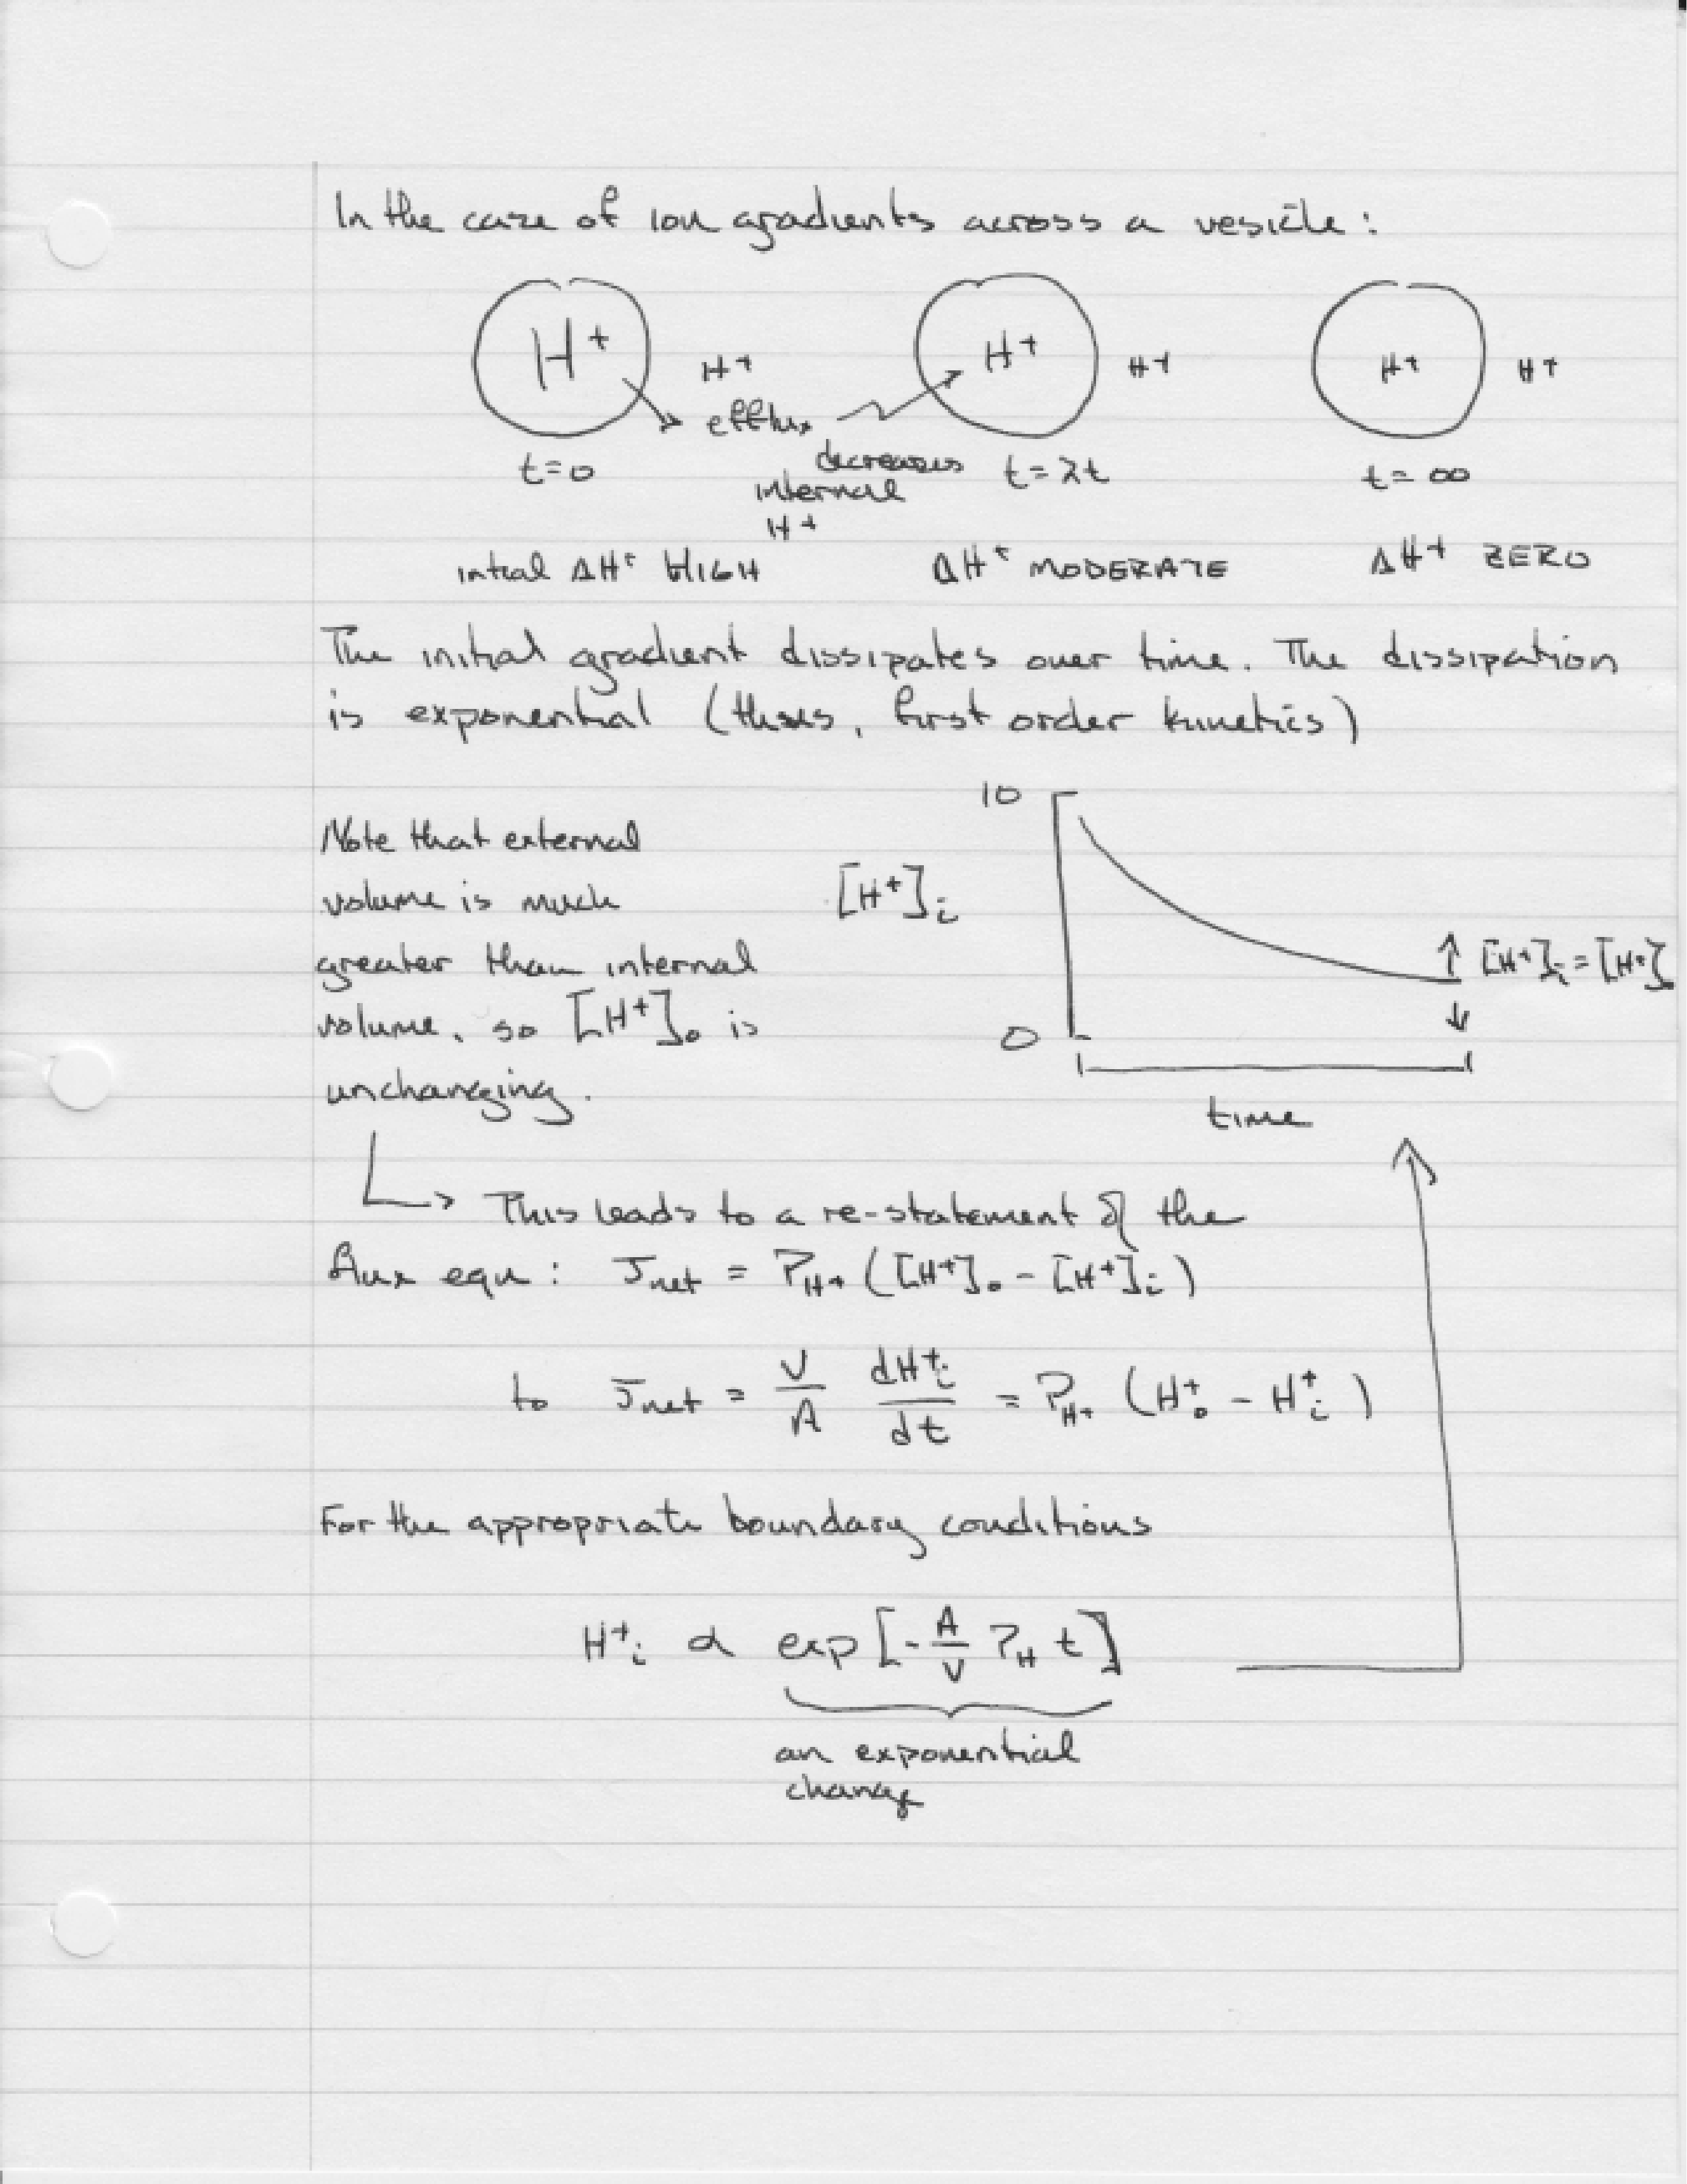 In the case of ion gradients across a vesicle:
H+ H+ H+ H+ H+ H+
efflux
t=0 decreases t=2t t=∞
internal
H+
intial ΔH+ HIGH ΔH+ MODERATE ΔH+ ZERO
The initial gradient dissipates over time. The dissipation
is exponential (thus, first order kinetics)
10
Note that external
volume is much [H+]i
greater than internal [H+]i = [H+]o
volume, so [H+]o is 0
unchanging.
time
This leads to a re-statement of the
flux equ: Jnet = PH+ ([H+]o - [H+]i)
to Jnet = V/A dH+i/dt = PH+ (H+o - H+i)
For the appropriate boundary conditions
H+i ∝ exp[-A/V PH t]
an exponential
change